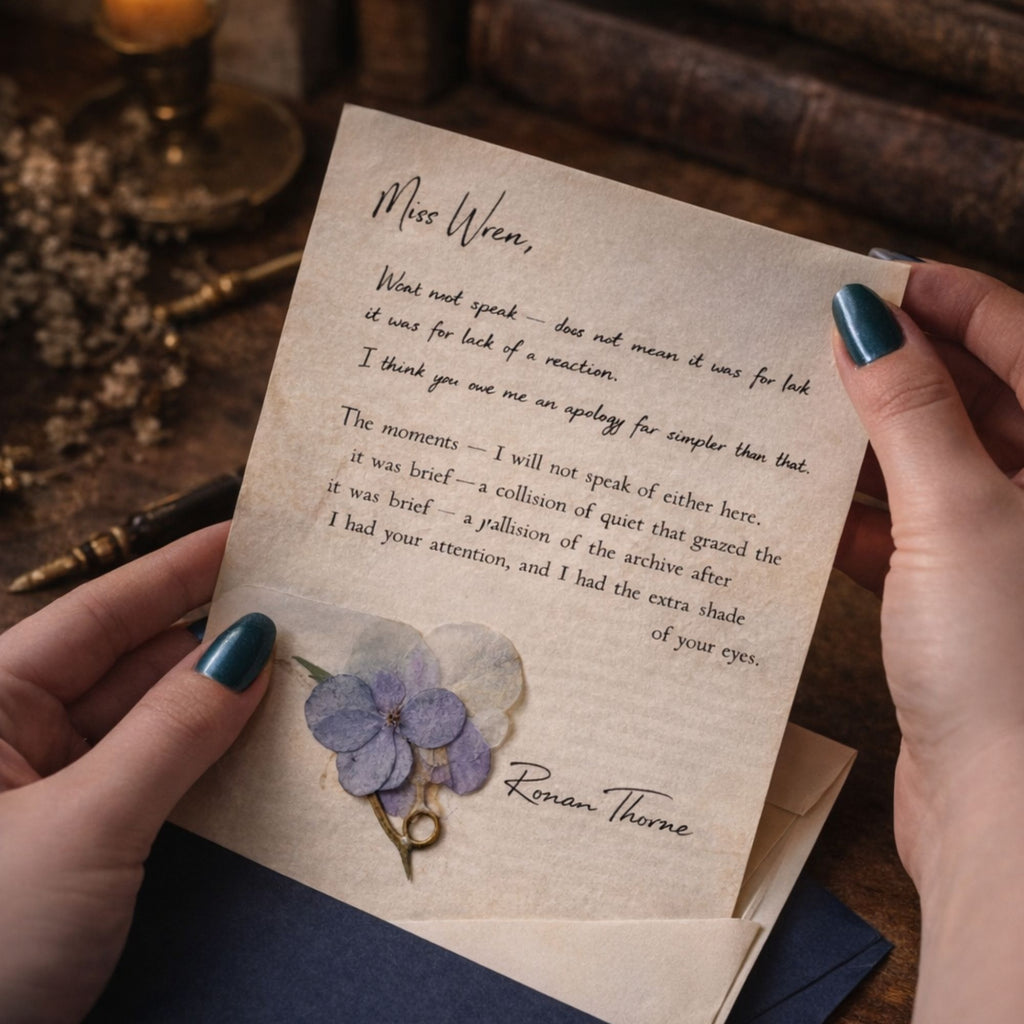 Miss Wren,
Woat mot speak — does not mean it was for lak
it was for lack of a reaction.
I think you owe me an apology far simpler than that.
The moments — I will not speak of either here.
it was brief — a collision of quiet that grazed the
it was brief — a of the archive after
I had your attention, and I had the extra shade
of your eyes.
Ronan Thorne